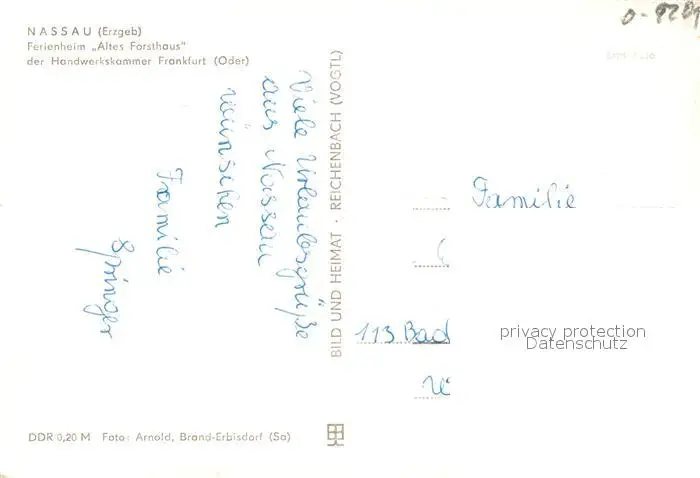 NASSAU (Erzgeb)
Ferienheim „Altes Forsthaus"
der Handwerkskammer Frankfurt (Oder)
Viele Urlaubsgrüße
aus Nassau
wünschen
Familie
Springer
BILD UND HEIMAT · REICHENBACH (VOGTL)
Familie
113 Bad
privacy protection
Datenschutz
DDR 0,20 M Foto: Arnold, Brand-Erbisdorf (Sa)